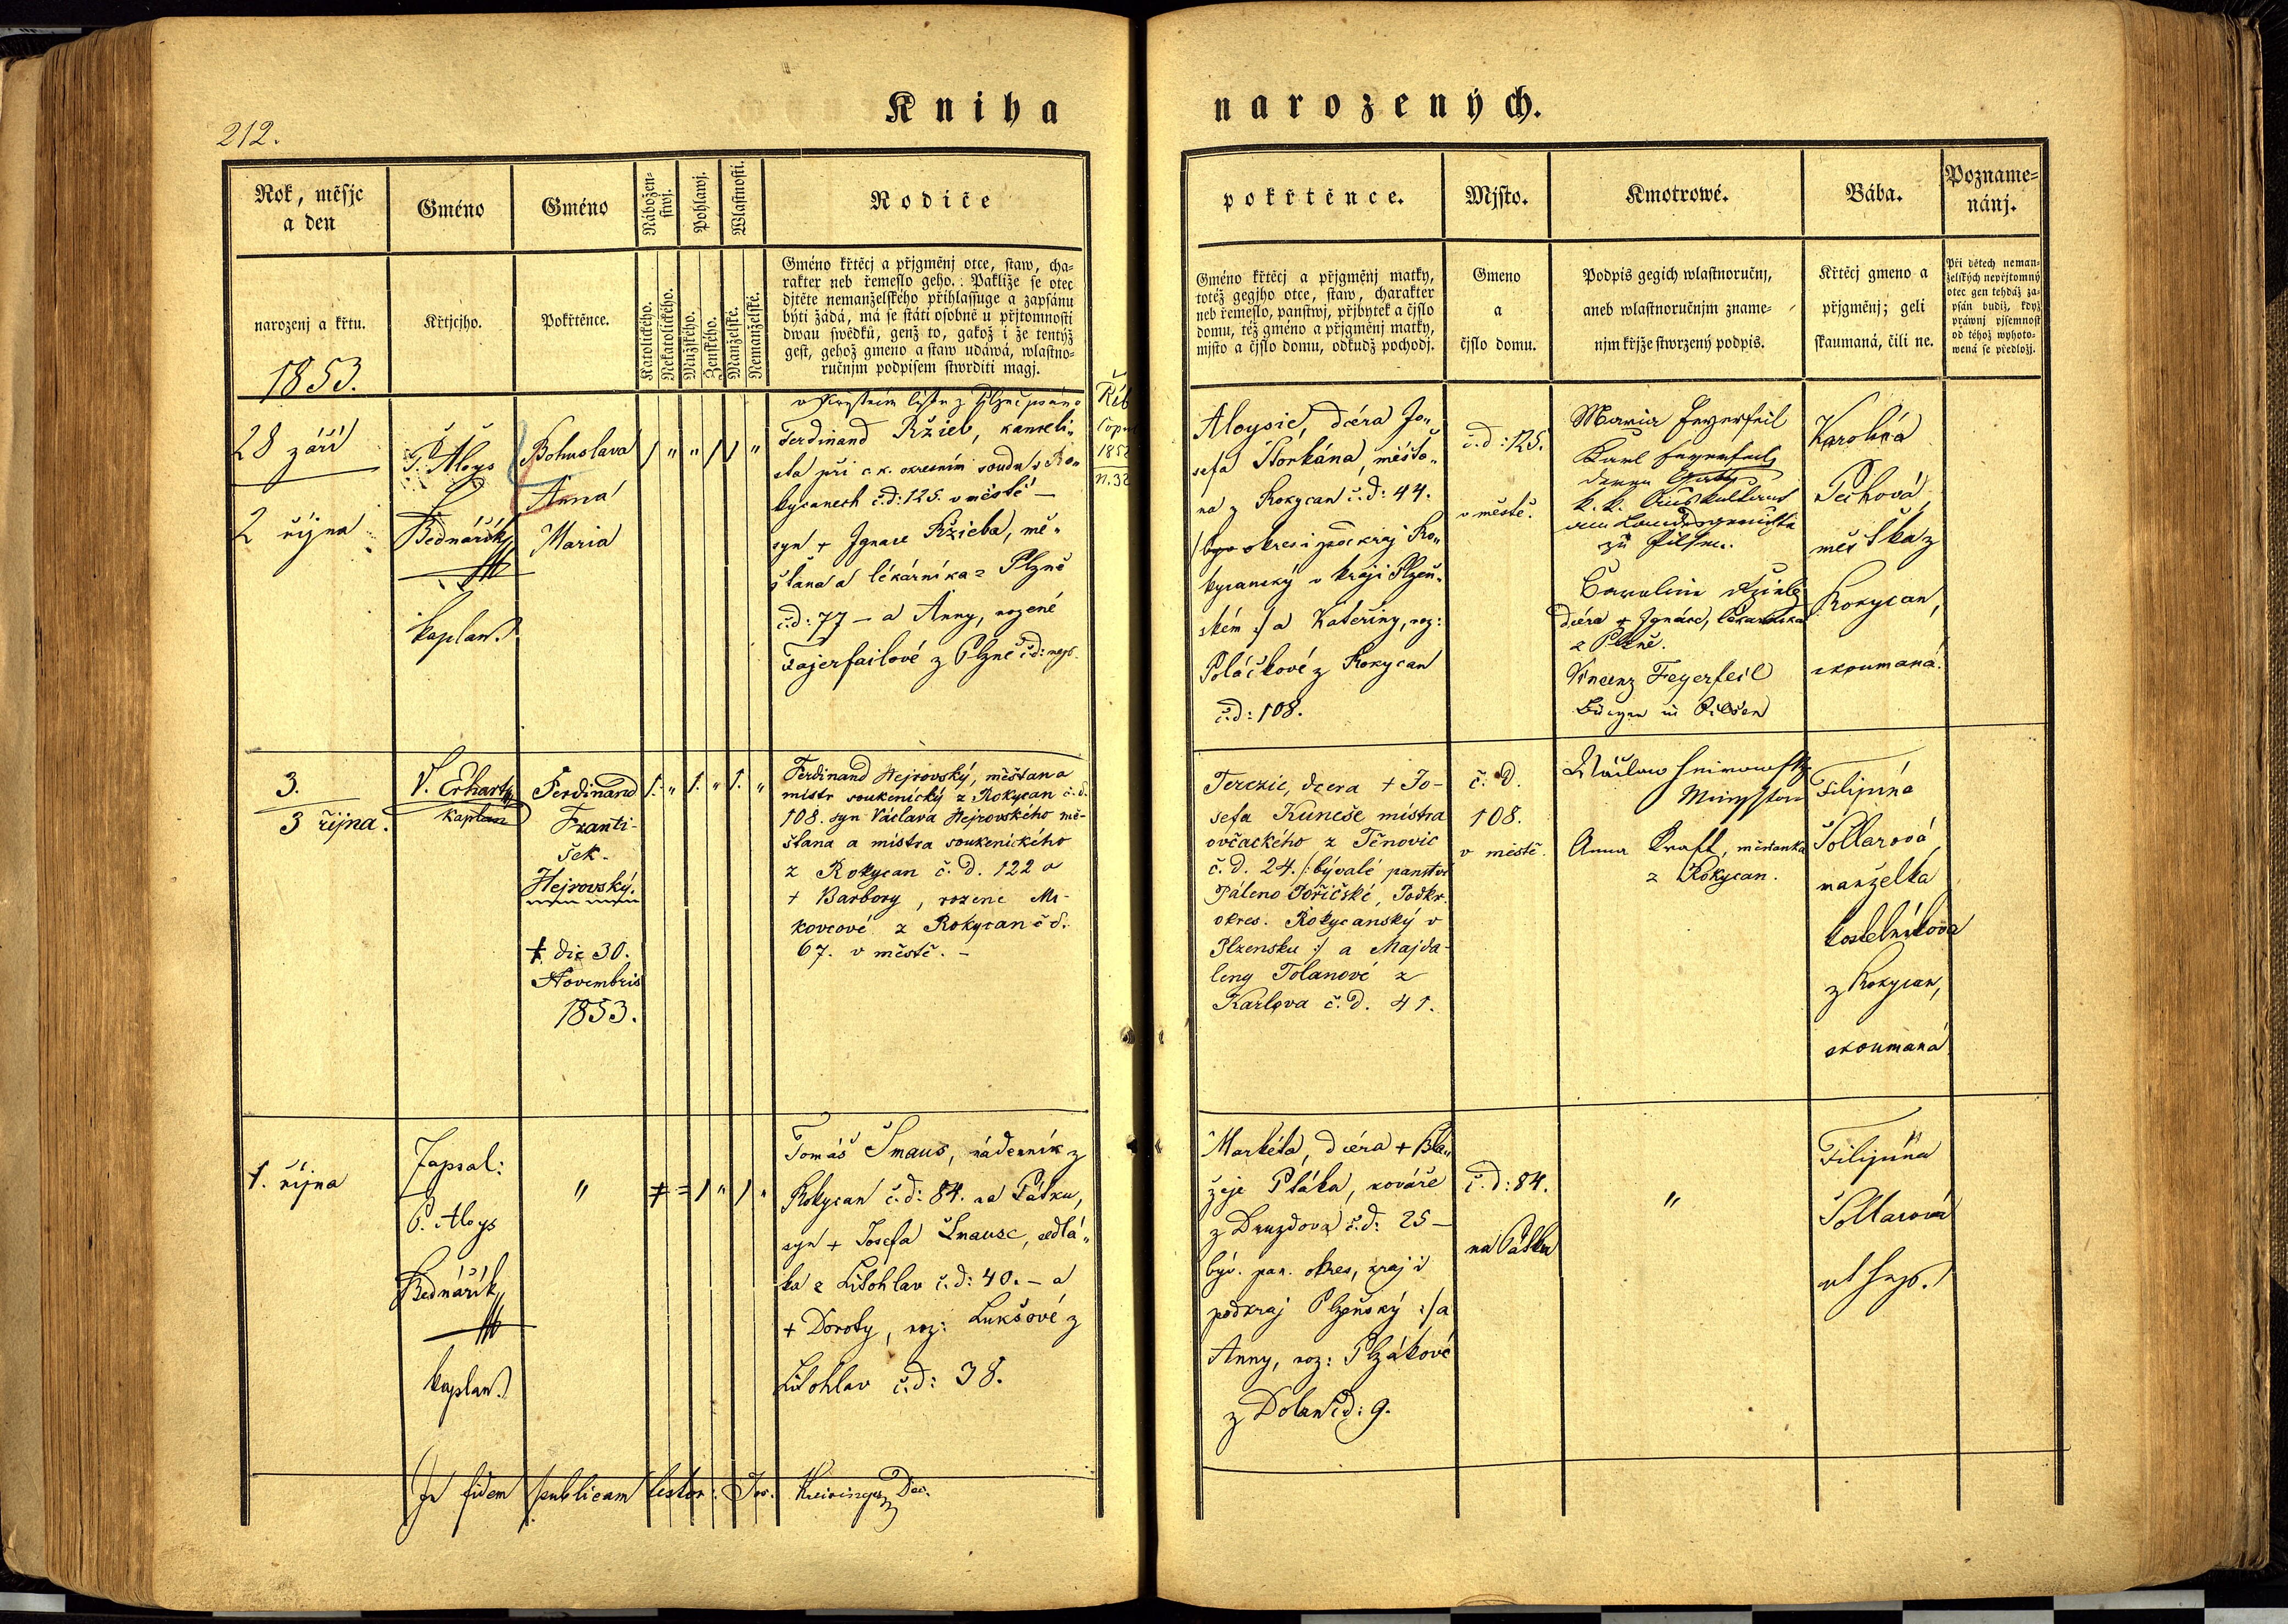 212.
Kniha
narozených.
Rok, měsjc
a den
Gméno
Gméno
Nábožen-
stwj.
Pohlawj.
Wlastnosti.
Rodiče
narozenj a křtu.
Křtjcjho.
Pokřtěnce.
Katolického.
Nekatolického.
Mužského.
Ženského.
Manželské.
Nemanželské.
Gméno křtěcj a přjgměnj otce, staw, cha-
rakter neb řemeslo geho.: Pakliže se otec
djtěte nemanželského přihlassuge a zapsánu
býti žádá, má se státi osobně u přjtomnosti
dwau swědků, genž to, gakož i že tentýž
gest, gehož gmeno a staw udáwá, wlastno-
ručnjm podpisem stwrditi magj.
1853.
28 září
2 října
P. Aloys
Bednářík
kaplan.
Bohuslava
Anna
Maria
Ferdinand Ržieb, kanceli-
sta při c.k. okresním soudu v Ro-
kycanech č.d: 125. v městě –
syn + Ignace Ržieba, mě-
šťana a lékárníka z Plzně
č.d: 77 – a Anny, rozené
Fajerfailové z Plzně č.d:
3.
3 října.
V. Erhart
kaplan
Ferdinand
Franti-
šek.
Hejrovský.
† die 30.
Novembris
1853.
Ferdinand Hejrovský, měšťan a
mistr soukenický z Rokycan č.d.
108. syn Václava Hejrovského mě-
šťana a mistra soukenického
z Rokycan č.d. 122 a
+ Barbory, rozené Mi-
kovcové z Rokycan č.d.
67. v městě. –
1. října
Zapsal:
P. Aloys
Bednářík
kaplan.
"
Tomáš Šmaus, nádenník z
Rokycan č.d: 84. na Pátku,
syn + Josefa Šmause, sedlá-
ka z Litohlav č.d: 40. – a
+ Doroty, roz: Lukšové z
Litohlav č.d: 38.
In fidem publicam testor: Jos. Dec.
pokřtěnce.
Mjsto.
Kmotrowé.
Bába.
Pozname-
nánj.
Gméno křtěcj a přjgměnj matky,
totéž gegjho otce, staw, charakter
neb řemeslo, panstwj, přjbytek a čjslo
domu, též gméno a přjgměnj matky,
mjsto a čjslo domu, odkudž pochodj.
Gmeno
a
čjslo domu.
Podpis gegich wlastnoručnj,
aneb wlastnoručnjm zname-
njm křjže stwrzený podpis.
Křtěcj gmeno a
přjgměnj; geli
skaumaná, čili ne.
Při dětech neman-
želských nepřjtomný
otec gen tehdáž za-
psán budiž, když
práwnj pjsemnost
od téhož wyhoto-
wená se předložj.
Aloysie, dcéra Jo-
sefa Štorkána, měšťa-
na z Rokycan č.d: 44.
kycanský v kraji Plzeň-
ském :/ a Kateřiny, roz:
Poláčkové z Rokycan
č.d: 108.
č.d: 125.
v městě.
Maria Feyerfeil
Karl Feyerfeil
k. k. Auskultant
zu Pilsen.
dcéra + Ignáce, lékárníka
z Plzně.
Vincenz Feyerfeil
Bürger in Pilsen
Karolina
Pechová,
měštka z
Rokycan,
zkoumaná.
Terezie, dcera + Jo-
sefa Kuneše mistra
ovčackého z Těnovic
č.d. 24. /: bývalé panství
Páleno Poříčské, Podkr.
okres. Rokycanský v
Plzensku :/ a Majda-
leny Tolanové z
Karlova č.d. 41.
č. d.
108.
v městě.
Anna Kraft, měšťanka
z Rokycan.
Filipína
Šollarová
manželka
kostelníkova
z Rokycan,
zkoumaná
Markéta, dcéra + Bla-
žeje Ptáka, kováře
z Druzdova č.d: 25 –
býv. pan. okres, kraj i
podkraj Plzeňský :/ a
Anny, roz: Plzákové
z Dolan č.d: 9.
č.d: 84.
na Pátku
"
Filipína
Šollarová
ut sup.